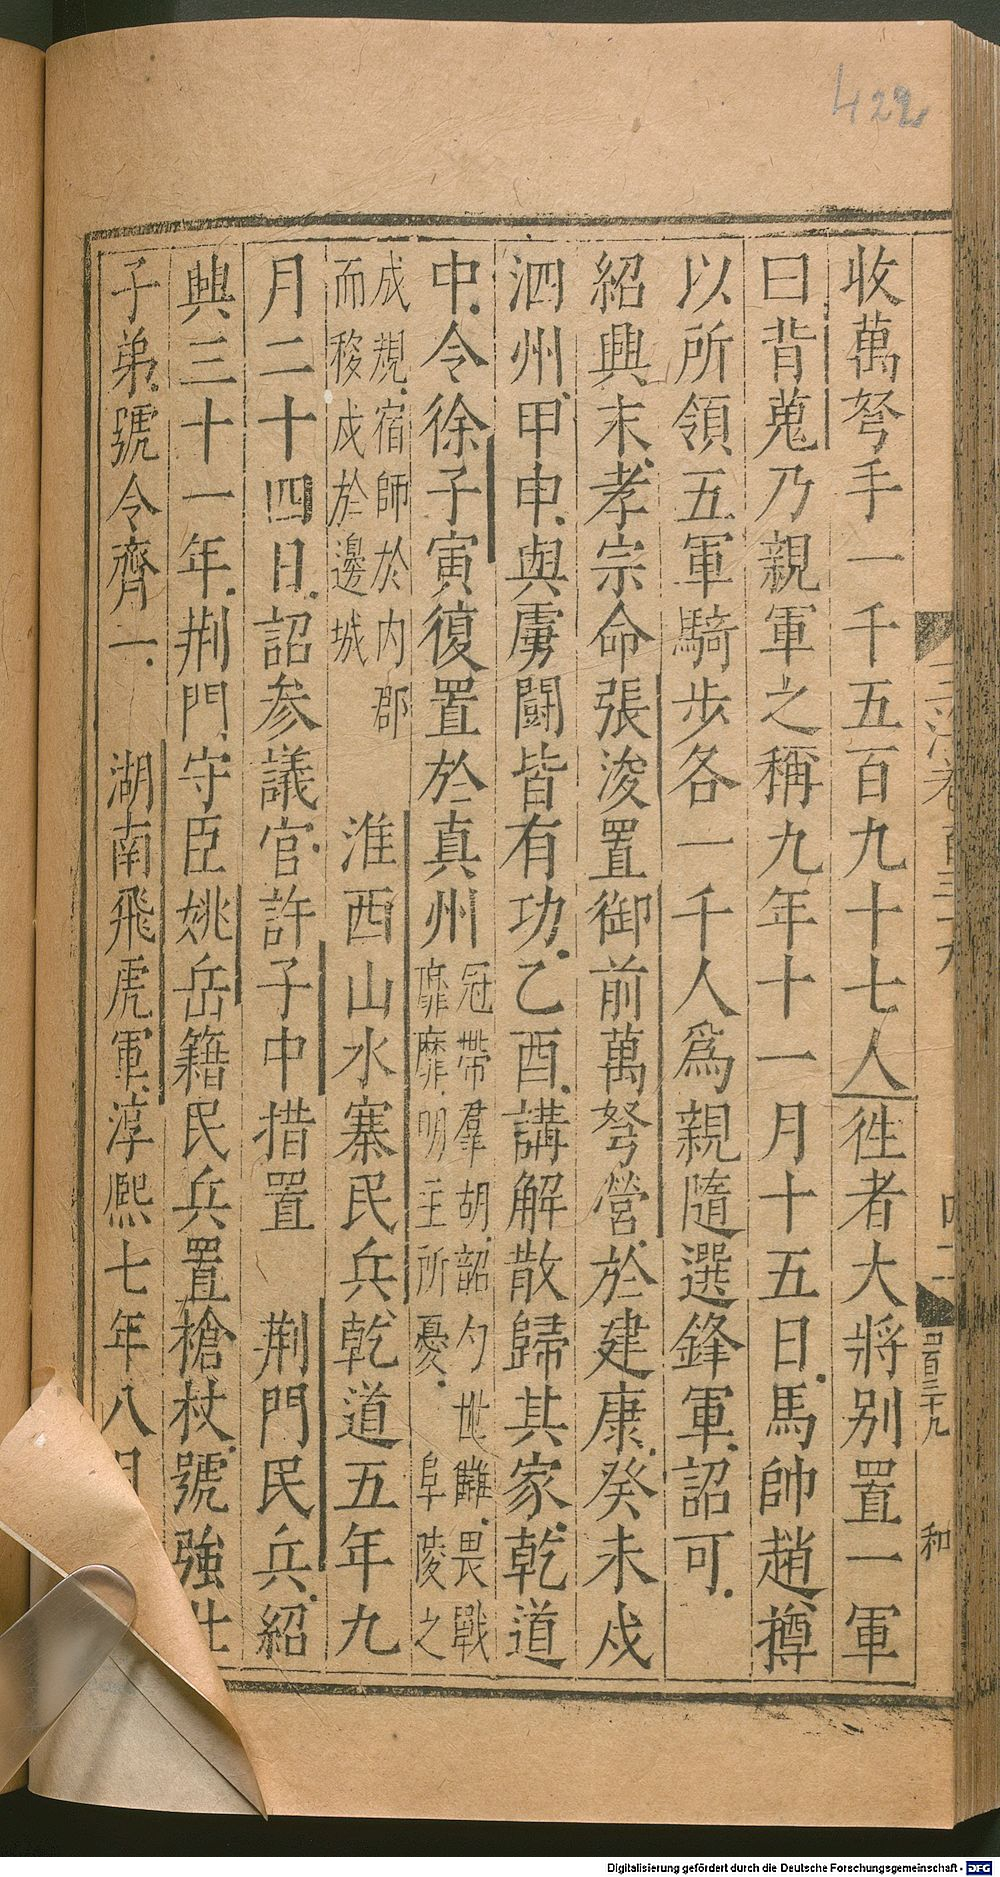 422
收萬弩手一千五百九十七人徃者大將别置一軍
曰背蒐乃親軍之稱九年十一月十五日馬帥趙樽
以所領五軍騎步各一千人爲親隨選鋒軍詔可
紹興末孝宗命張浚置御前萬弩營於建康癸未戍
泗州甲申與虜鬭皆有功乙酉講解散歸其家乾道
中令徐子寅復置於真州
冠帶羣胡詔勺世讎畏戰
靡靡明主所憂 阜陵之
成規宿師於内郡
而移戍於邊城
淮西山水寨民兵乾道五年九
月二十四日詔参議官許子中措置 荆門民兵紹
興三十一年荆門守臣姚岳籍民兵置槍杖號強壮
子弟號令齊一 湖南飛虎軍淳熈七年八月
四百三十九
和
Digitalisierung gefördert durch die Deutsche Forschungsgemeinschaft - DFG